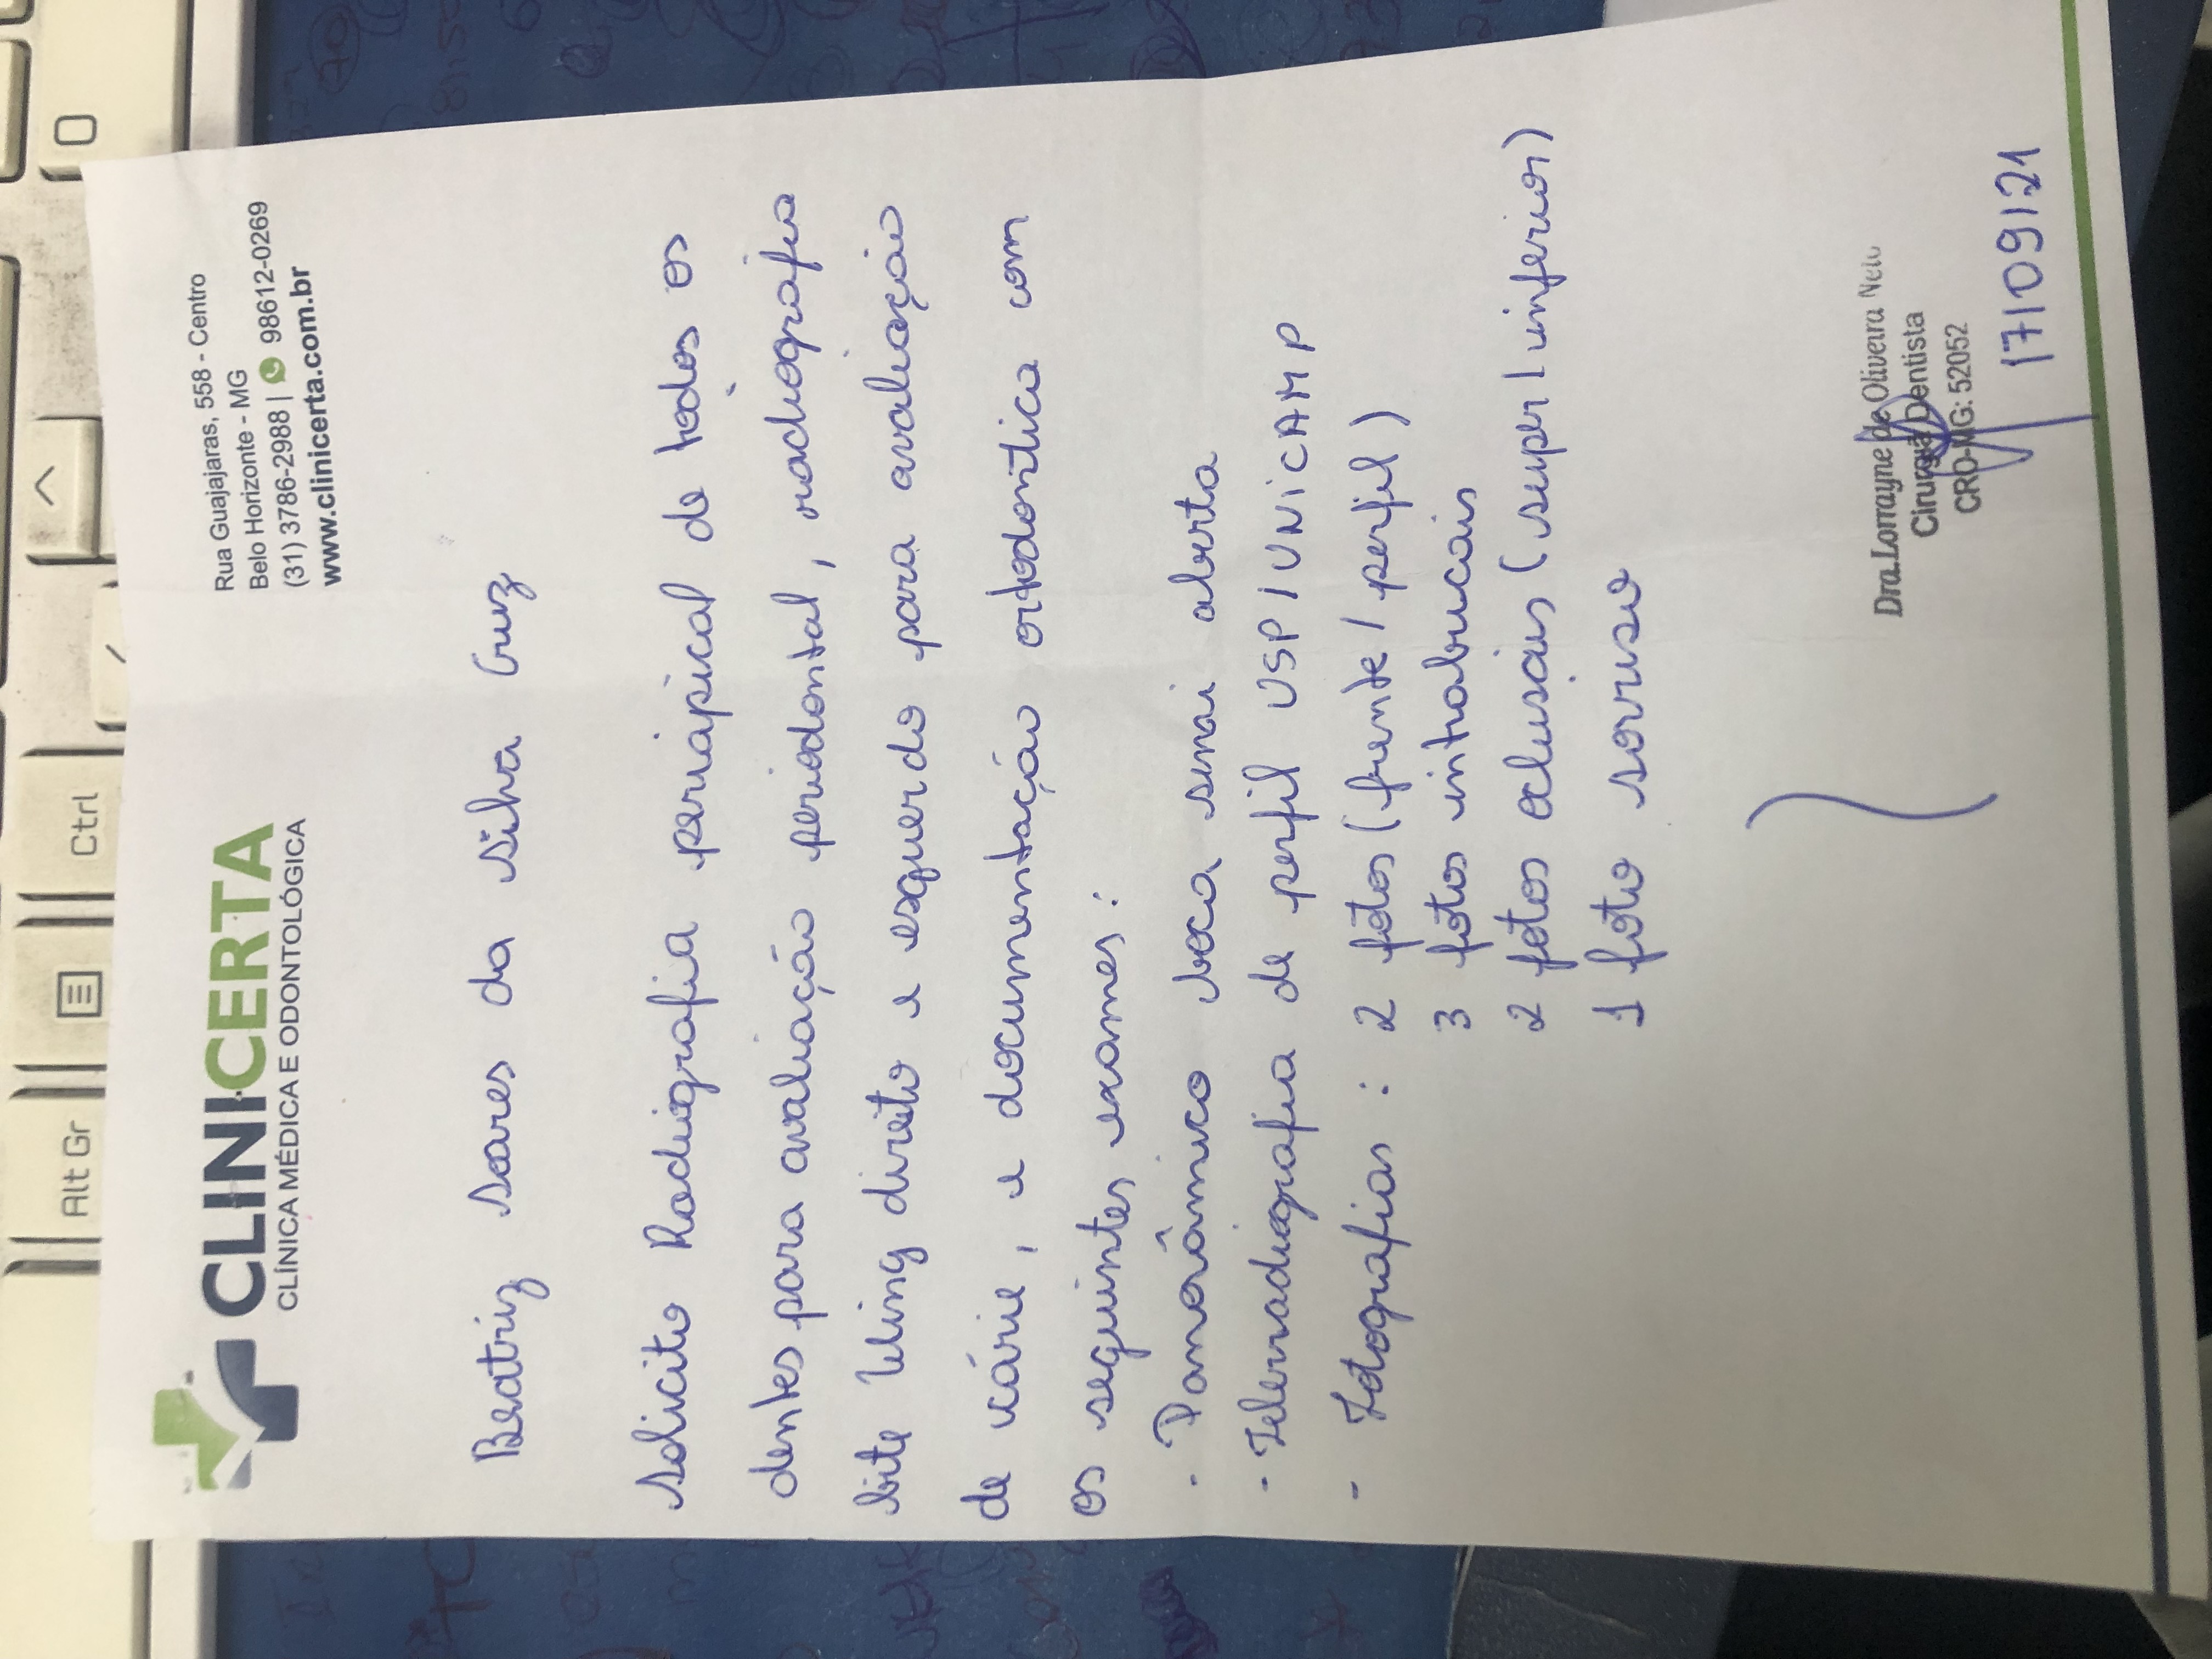 CLINICERTA
CLÍNICA MÉDICA E ODONTOLÓGICA
Rua Guajajaras, 558 - Centro
Belo Horizonte - MG
(31) 3786-2988 | 98612-0269
www.clinicerta.com.br
Beatriz Soares da Silva Cruz
Solicito Radiografia periapical de todos os
dentes para avaliação periodontal, radiografia
bite wing direito e esquerdo para avaliação
de cárie, e documentação ortodontica com
os seguintes exames:
- Panorâmico boca semi aberta
- Telerradiografia de perfil USP/UNICAMP
- Fotografias: 2 fotos (frente/perfil)
3 fotos intrabucais
2 fotos oclusais (super/inferior)
1 foto sorriso
Dra. Lorrayne de Oliveira
Cirurgiã Dentista
CRO-MG: 52052
17/09/21
Alt Gr
Ctrl